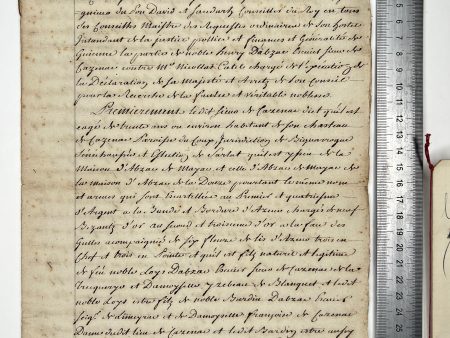 du Sou David de Jaudarts Conseiller du Roy en tous
ses Conseilles Maistre des Requestes ordinaires de Son hostel
Intandant de la justice pollice et finances et Generalités de
Guienne la partie de noble henry Dabzac Ecuier sieur de
Cazenac contre Me Nicollas Catel chargé de l'Execution de
la Declaration de sa Majesté et Arrets de son Conseil
pour la Recerche de la fausse et véritable noblesse
Premierement ledit sieur de Cazenac dit qu'il est
eagé de trente ans ou environ habitant de son chasteau
de Cazenac Paroisse du Coux Juridiction de Bigarroque
Séneschaussée de Sarlat qu'il est ysseu de la
Maison d'Abzac de Mayac et celle d'Abzac de Mayac de
la maison d'Abzac de la Douze portant le mesme nom
et armes qui sont Escartellée au Premier et quatriesme
d'Argent a la bande et Bordure d'Azeur chargé de neuf
Bezants d'or au second et troisieme d'or a la face de
Gulles acompaignée de six fleurs de lis d'Azeur trois en
Chef et trois en Pointe et quil est filz naturel et legitime
de feu noble Loys Dabzac Ecuier sieur de Cazenac de la
et Damoyselle yzebeau de Blanquet et ledit
noble Loys estre filz de noble Bardin Dabzac Ecuier
seigr de Limeyrac et de Damoyselle françoise de Cazenac
Dame dudit lieu de Cazenac et ledit Bardin estre aussy
5 6 7 8 9 10 11 12 13 14 15 16 17 18 19 20 21 22 23 24 25